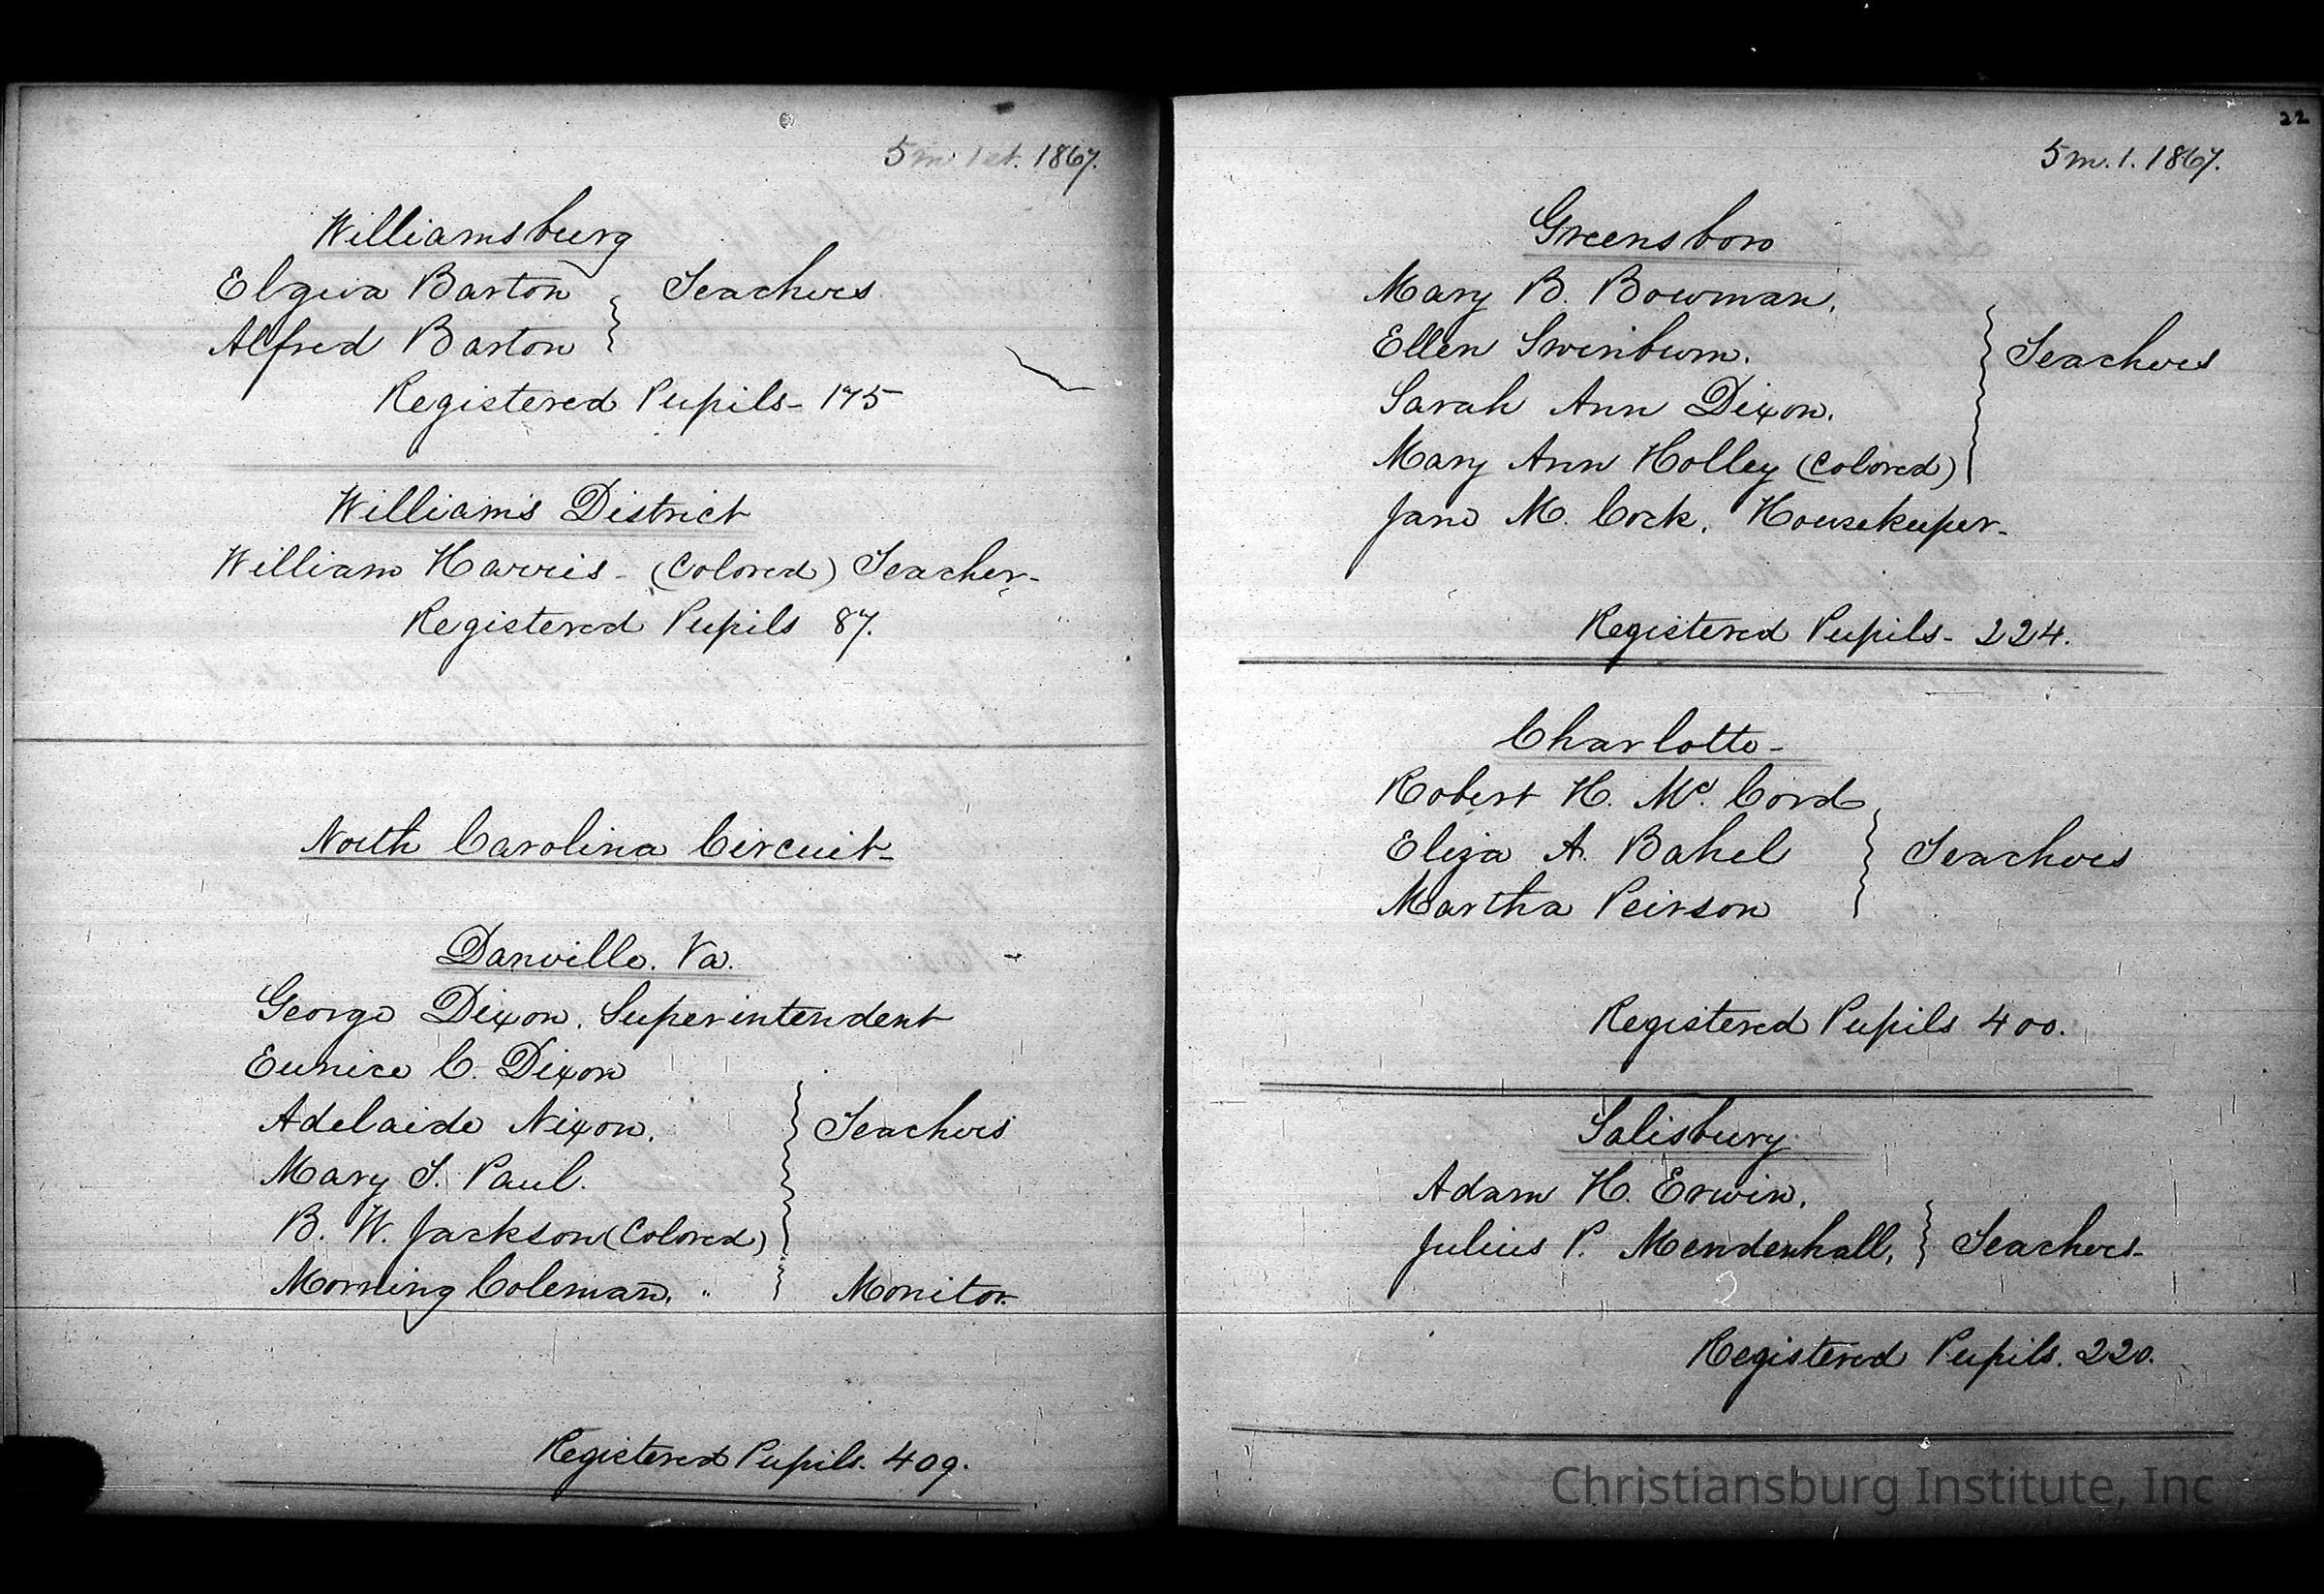 5 m. 1st. 1867.
Williamsburg
Elgiva Barton } Teachers
Alfred Barton
Registered Pupils - 175
William's District
William Harris - (Colored) Teacher -
Registered Pupils 87.
North Carolina Circuit -
Danville. Va.
George Dixon. Superintendent
Eunice C. Dixon
Adelaide Nixon. } Teachers
Mary T. Paul.
B. W. Jackson (Colored)
Morning Coleman. " } Monitor.
Registered Pupils. 409.
22
5 m. 1. 1867.
Greensboro
Mary B. Bowman.
Ellen Swinburn. } Teachers
Sarah Ann Dixon.
Mary Ann Holley (Colored)
Jane M. Cock. Housekeeper -
Registered Pupils - 224.
Charlotte -
Robert H. Mc. Cord
Eliza A. Bahel } Teachers
Martha Peirson
Registered Pupils 400.
Salisbury
Adam H. Erwin.
Julius P. Mendenhall. } Teachers -
Registered Pupils. 220.
Christiansburg Institute, Inc